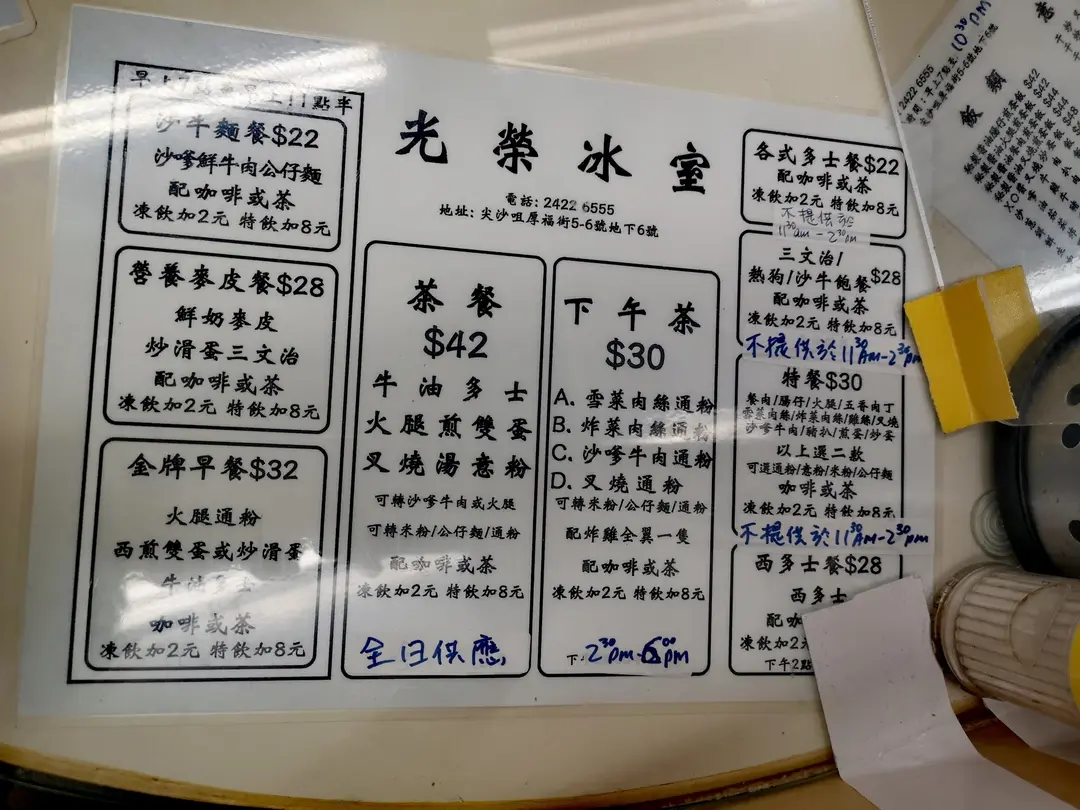 早上7點至早上11點半
沙牛麵餐$22
沙嗲鮮牛肉公仔麵
配咖啡或茶
凍飲加2元 特飲加8元
營養麥皮餐$28
鮮奶麥皮
炒滑蛋三文治
配咖啡或茶
凍飲加2元 特飲加8元
金牌早餐$32
火腿通粉
西煎雙蛋或炒滑蛋
牛油多士
咖啡或茶
凍飲加2元 特飲加8元
光榮冰室
電話: 2422 6555
地址: 尖沙咀厚福街5-6號地下6號
茶餐
$42
牛油多士
火腿煎雙蛋
叉燒湯意粉
可轉沙嗲牛肉或火腿
可轉米粉/公仔麵/通粉
配咖啡或茶
凍飲加2元 特飲加8元
全日供應
下午茶
$30
A. 雪菜肉絲通粉
B. 炸菜肉絲通粉
C. 沙嗲牛肉通粉
D. 叉燒通粉
可轉米粉/公仔麵/通粉
配炸雞全翼一隻
配咖啡或茶
凍飲加2元 特飲加8元
下 2³⁰pm-6⁰⁰pm
各式多士餐$22
配咖啡或茶
凍飲加2元 特飲加8元
不提供於
11³⁰am-2³⁰pm
三文治/
熱狗/沙牛飽餐$28
配咖啡或茶
凍飲加2元 特飲加8元
不提供於11³⁰AM-2³⁰pm
特餐$30
餐肉/腸仔/火腿/五香肉丁
雪菜肉絲/炸菜肉絲/雞絲/叉燒
沙嗲牛肉/豬扒/煎蛋/炒蛋
以上選二款
可選通粉/意粉/米粉/公仔麵
咖啡或茶
凍飲加2元 特飲加8元
不提供於11³⁰AM-2³⁰pm
西多士餐$28
西多士
配咖
凍飲加2
下午2點
2422 6555
時間: 早上7點至10³⁰pm
尖沙咀厚福街5-6號地下6號
飯 類
$42
$44
$44
$48